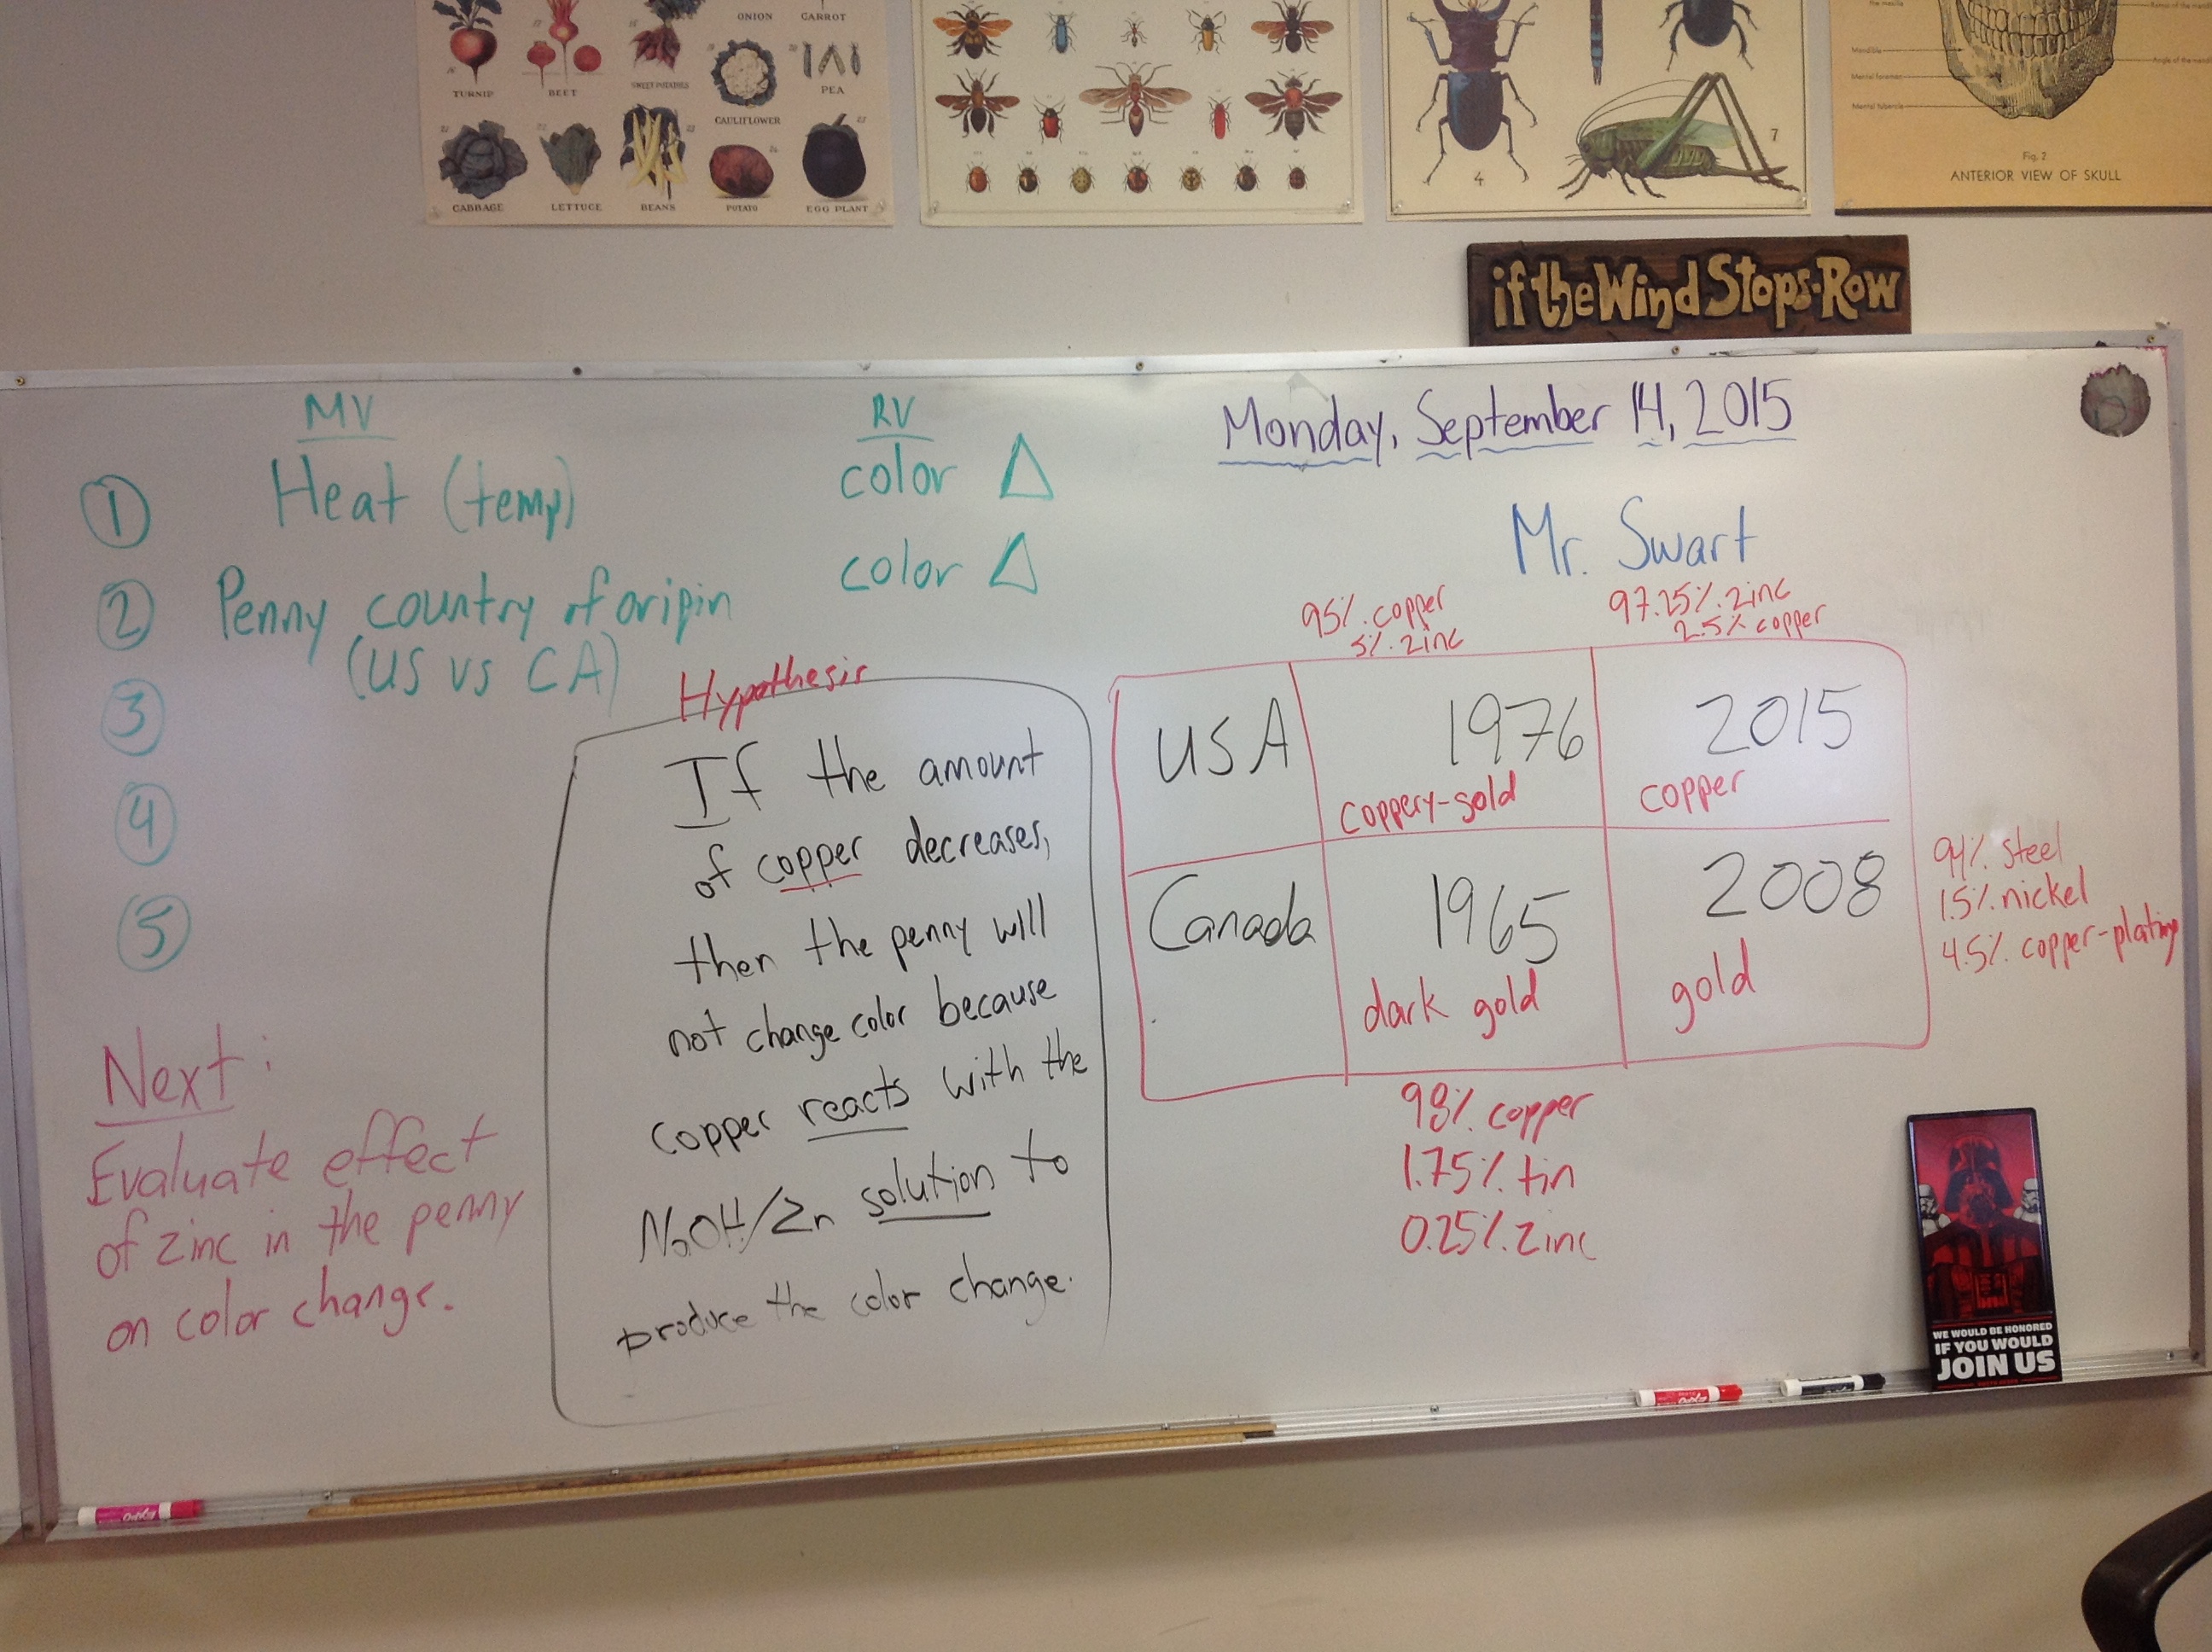 ONION CARROT
TURNIP BEET SWEET POTATOES CAULIFLOWER PEA
CABBAGE LETTUCE BEANS POTATO EGG PLANT
4
7
Mandible
Mental foramen
Mental tubercle
Fig. 2
ANTERIOR VIEW OF SKULL
if the Wind Stops-Row
MV RV
1 Heat (temp) color Δ
2 Penny country of origin color Δ
(US vs CA)
3
4
5
Next:
Evaluate effect
of zinc in the penny
on color change.
Hypothesis
If the amount
of copper decreases,
then the penny will
not change color because
copper reacts with the
NaOH/Zn solution to
produce the color change.
Monday, September 14, 2015
Mr. Swart
95% copper
5% zinc
97.25% zinc
2.5% copper
USA 1976 2015
coppery-gold copper
Canada 1965 2008
dark gold gold
94% steel
1.5% nickel
4.5% copper-plating
98% copper
1.75% tin
0.25% zinc
WE WOULD BE HONORED
IF YOU WOULD
JOIN US